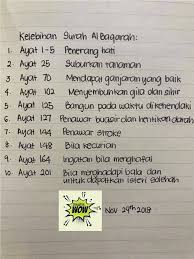 Kelebihan Surah Al Baqarah:
1. Ayat 1-5 Penerang hati
2. Ayat 25 Suburkan tanaman
3. Ayat 70 Mendapat ganjaran yang baik
4. Ayat 102 Menyembuhkan gila dan sihir
5. Ayat 125 Bangun pada waktu dikehendaki
6. Ayat 127 Penawar buasir dan hentikan darah
7. Ayat 144 Penawar stroke
8. Ayat 148 Bila kecurian
9. Ayat 164 Ingatan bila menghafal
10. Ayat 201 Bila menghadapi bala dan
untuk dapatkan isteri solehah
WOW
Nov 29th 2018